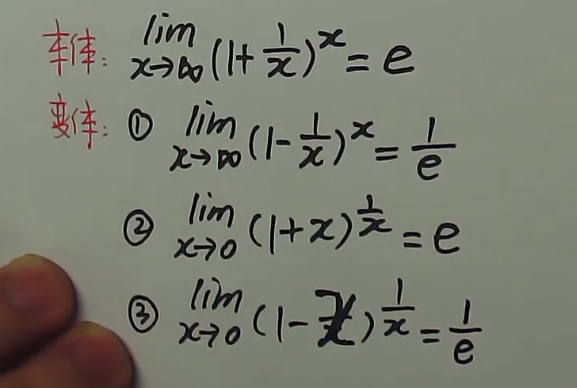 本体: lim x→∞ (1+1/x)^x = e
变体: ① lim x→∞ (1-1/x)^x = 1/e
② lim x→0 (1+x)^(1/x) = e
③ lim x→0 (1-x)^(1/x) = 1/e